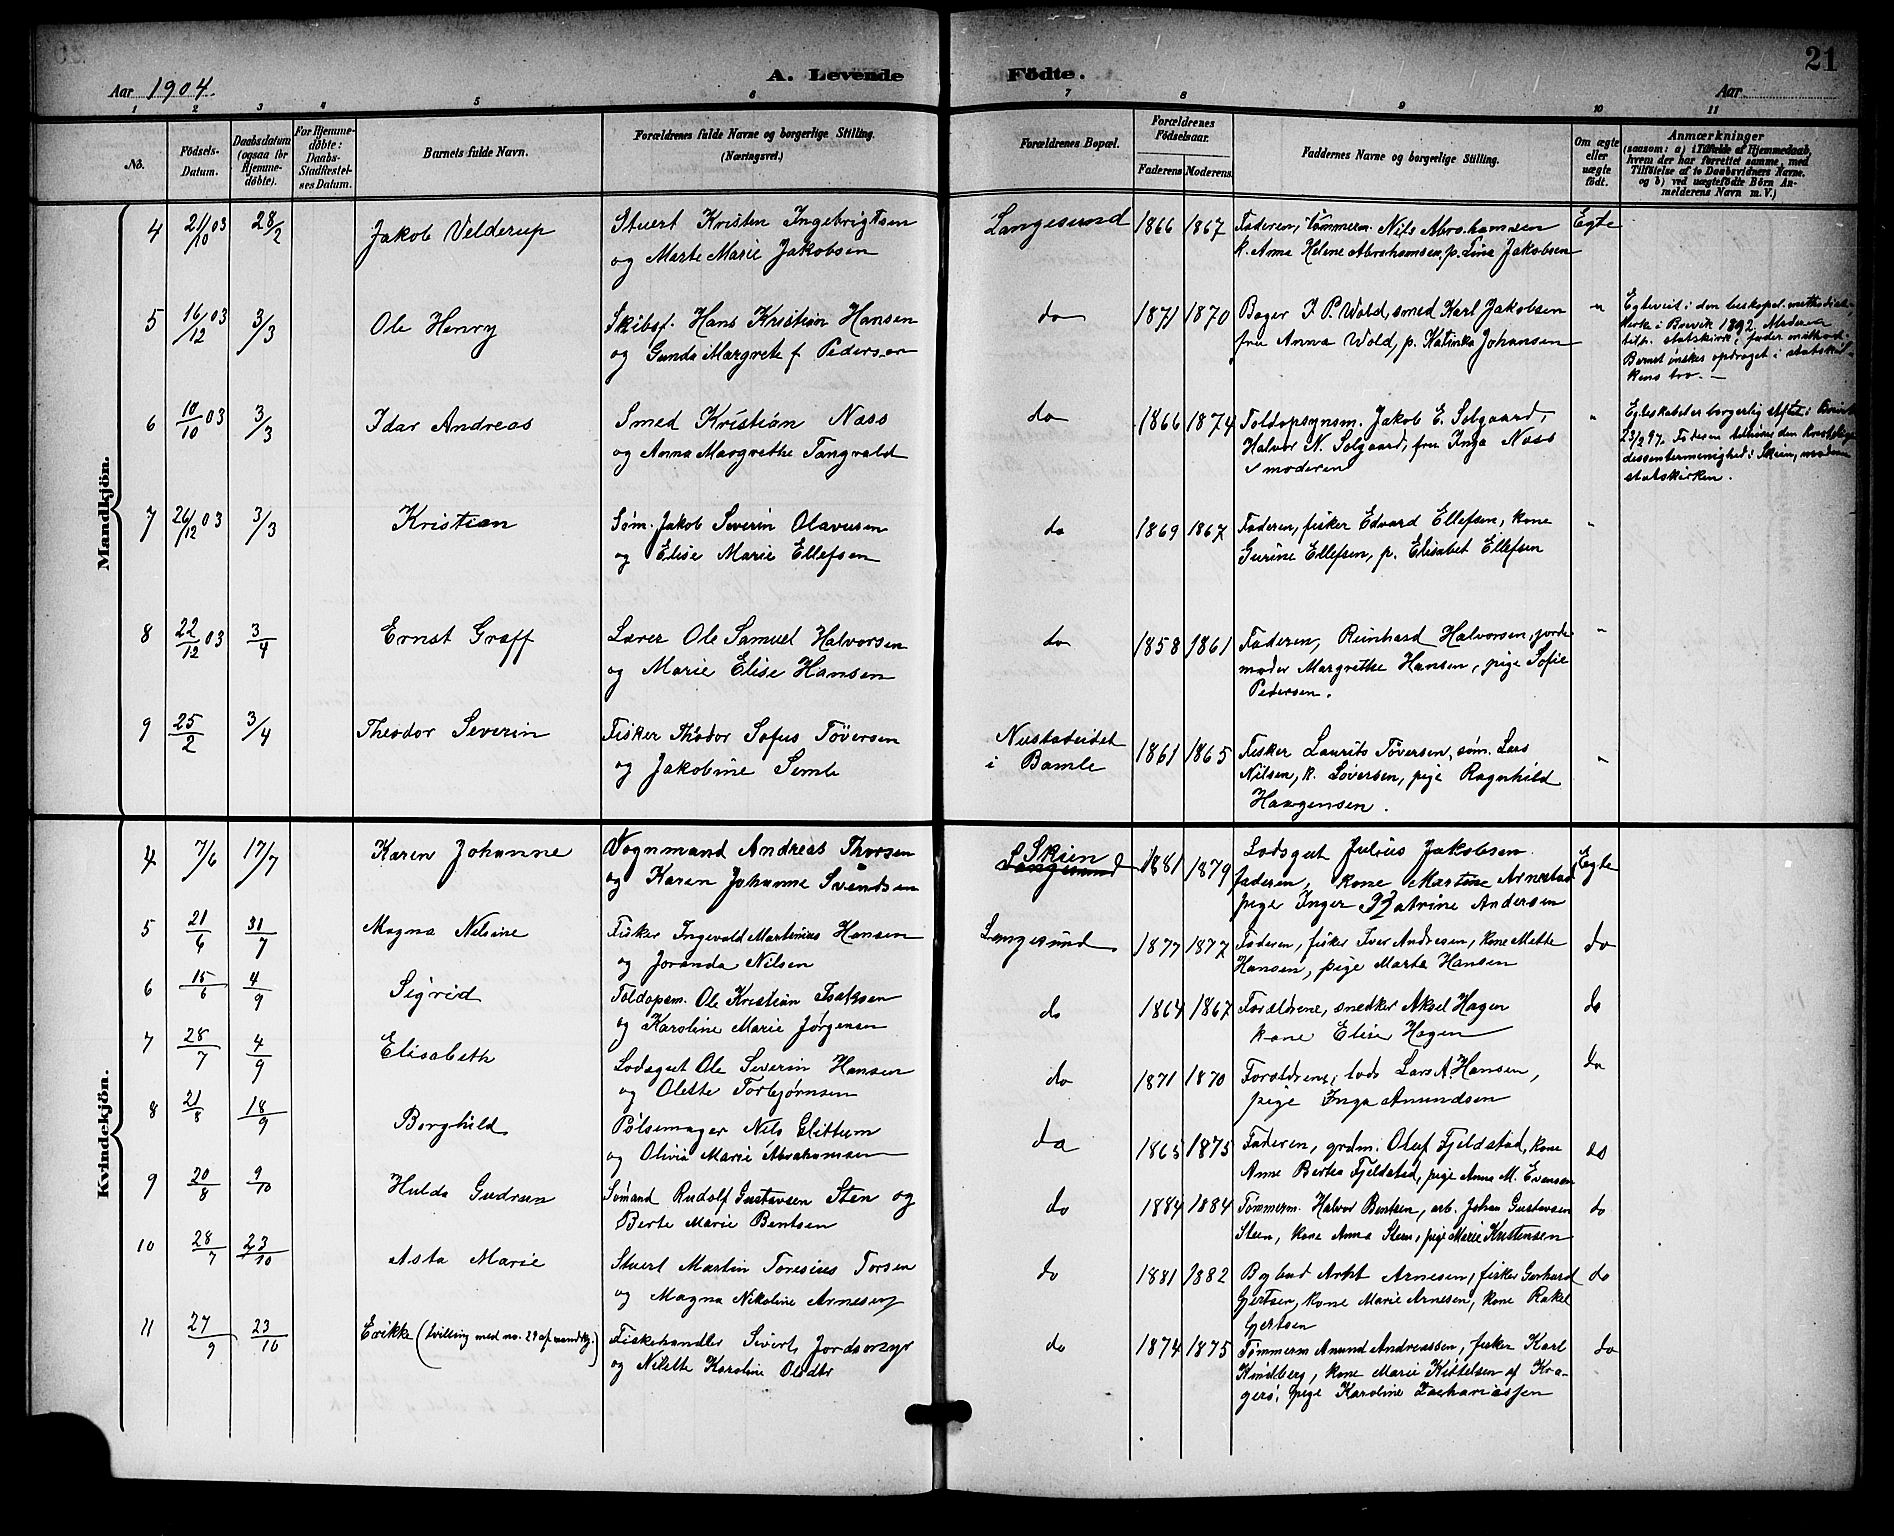 21
Aar 1904.
A. Levende Födte.
Aar
1 2 3 4 5 6 7 8 9 10 11
No.
Födsels-Datum.
Daabsdatum (ogsaa for Hjemme-døbte).
For Hjemme-døbte: Daabs-Stadfæstel-ses Datum.
Barnets fulde Navn.
Forældrenes fulde Navne og borgerlige Stilling.
(Næringsvei.)
Forældrenes Bopæl.
Forældrenes Födselsaar.
Faderens
Moderens
Faddernes Navne og borgerlige Stilling.
Om ægte eller uægte født.
Anmærkninger
(saasom: a) i Tilfælde af Hjemmedaab, hvem der har forrettet samme, med Tilføielse af to Daabsvidners Navne, og b) ved uægtefødte Børn An-melderens Navn m. V.)
Mandkjön.
4 21/10 03 28/2 Jakob Velderup Stuert Kristen Ingebrigtsen Langesund 1866 1867 Faderen, tømmerm. Nils Abrahamsen Egte
og Marte Marie Jakobsen k. Anna Helene Abrahamsen, p. Lina Jakobsen
5 16/12 03 3/3 Ole Henry Skibsf. Hans Kristian Hansen do 1871 1870 Bager I. P. Wold, smed Karl Jakobsen "
og Gunda Margrete f. Pedersen fru Anna Wold, p. Katinka Johansen
Egteviet i den biskopel. methodist-
kirke i Brevik 1892. Moderen
tilh. statskirk, fader method.
Barnet ønskes opdraget i statskir-
kens tro. —
6 10/10 03 3/3 Idar Andreas Smed Kristian Nass do 1866 1874 Toldopsynsm. Jakob E. Solgaard "
og Anna Margrethe Tangvald Halvor N. Solgaard, fru Inga Nass
moderen
Egteskabet er borgerlig stiftet i
23/2 97. Faderen tilhører den
dissentermenighed i Skien, moderen
statskirken.
7 26/12 03 3/3 Kristian Søm. Jakob Severin Olavesen do 1869 1867 Faderen, fisker Edvard Ellefsen, kone "
og Elise Marie Ellefsen Gurine Ellefsen, p. Elisabet Ellefsen
8 22/12 03 3/4 Ernst Graff Lærer Ole Samuel Halvorsen do 1858 1861 Faderen, Reinhard Halvorsen, jorde "
og Marie Elise Hansen moder Margrethe Hansen, pige Sofie
Pedersen.
9 25/2 3/4 Theodor Severin Fisker Theodor Sofus Tøversen Nustadeidet 1861 1865 Fisker Laurits Tøversen, søm. Lars "
og Jakobine Semb i Bamle Nilsen, k. Løversen, pige Ragnhild
Haagensen.
Kvindekjön.
4 7/6 17/7 Karen Johanne Vognmand Andreas Thorsen Skien 1881 1879 Lodsgut Julius Jakobsen Egte
og Karen Johanne Svendsen Langesund faderen, kone Martine
pige Inger Katrine Andersen
5 21/6 31/7 Magna Nilsine Fisker Ingevald Martinius Hansen Langesund 1877 1877 Faderen, fisker Iver Andresen, kone Mette do
og Joranda Nilsen Hansen, pige Marta Hansen
6 15/6 4/9 Sigrid Toldopsm. Ole Kristian Isaksen do 1864 1867 Forældrene, snedker Aksel Hagen do
og Karoline Marie Jørgensen kone Elise Hagen
7 28/7 4/9 Elisabeth Lodsgut Ole Severin Hansen do 1871 1870 Forældrene, lods Lars A. Hansen, do
og Olette Torbjørnsen pige Inga Amundsen
8 21/8 18/9 Borghild Pølsemager Nils Glittum do 1865 1875 Faderen, grdm. Oluf Fjeldstad, kone do
og Olivia Marie Abrahamsen Anne Bertea Fjeldstad, pige Anna M. Evensen
9 20/8 9/10 Hulda Gudrun Sømand Rudolf Gustavsen Sten og do 1884 1884 Tømmerm. Halvor Bentsen, arb. Johan Gustavsen do
Berte Marie Bentsen Steen, kone Anna Steen, pige Marie Kristensen
10 28/7 23/10 Asta Marie Stuert Martin Toresius Torsen do 1881 1882 Bybud Arnt Arnesen, fisker Gerhard do
og Magna Nikoline Arnesen Gjertsen, kone Marie Arnesen, kone Rakel
Gjertsen
11 27/9 23/10 Erikke (tvilling med no. 29 af mandkj.) Fiskehandler Sivert Jordsøyr do 1874 1875 Tømmerm Anund Andreassen, fisker Karl do
og Nilette Karoline Olsdtr Kindberg, kone Marie Kittelsen af Kra-
gerø, pige Karoline Zachariassen